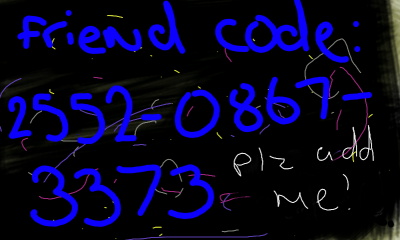 friend code:
2552-0867-
3373 plz add
me!